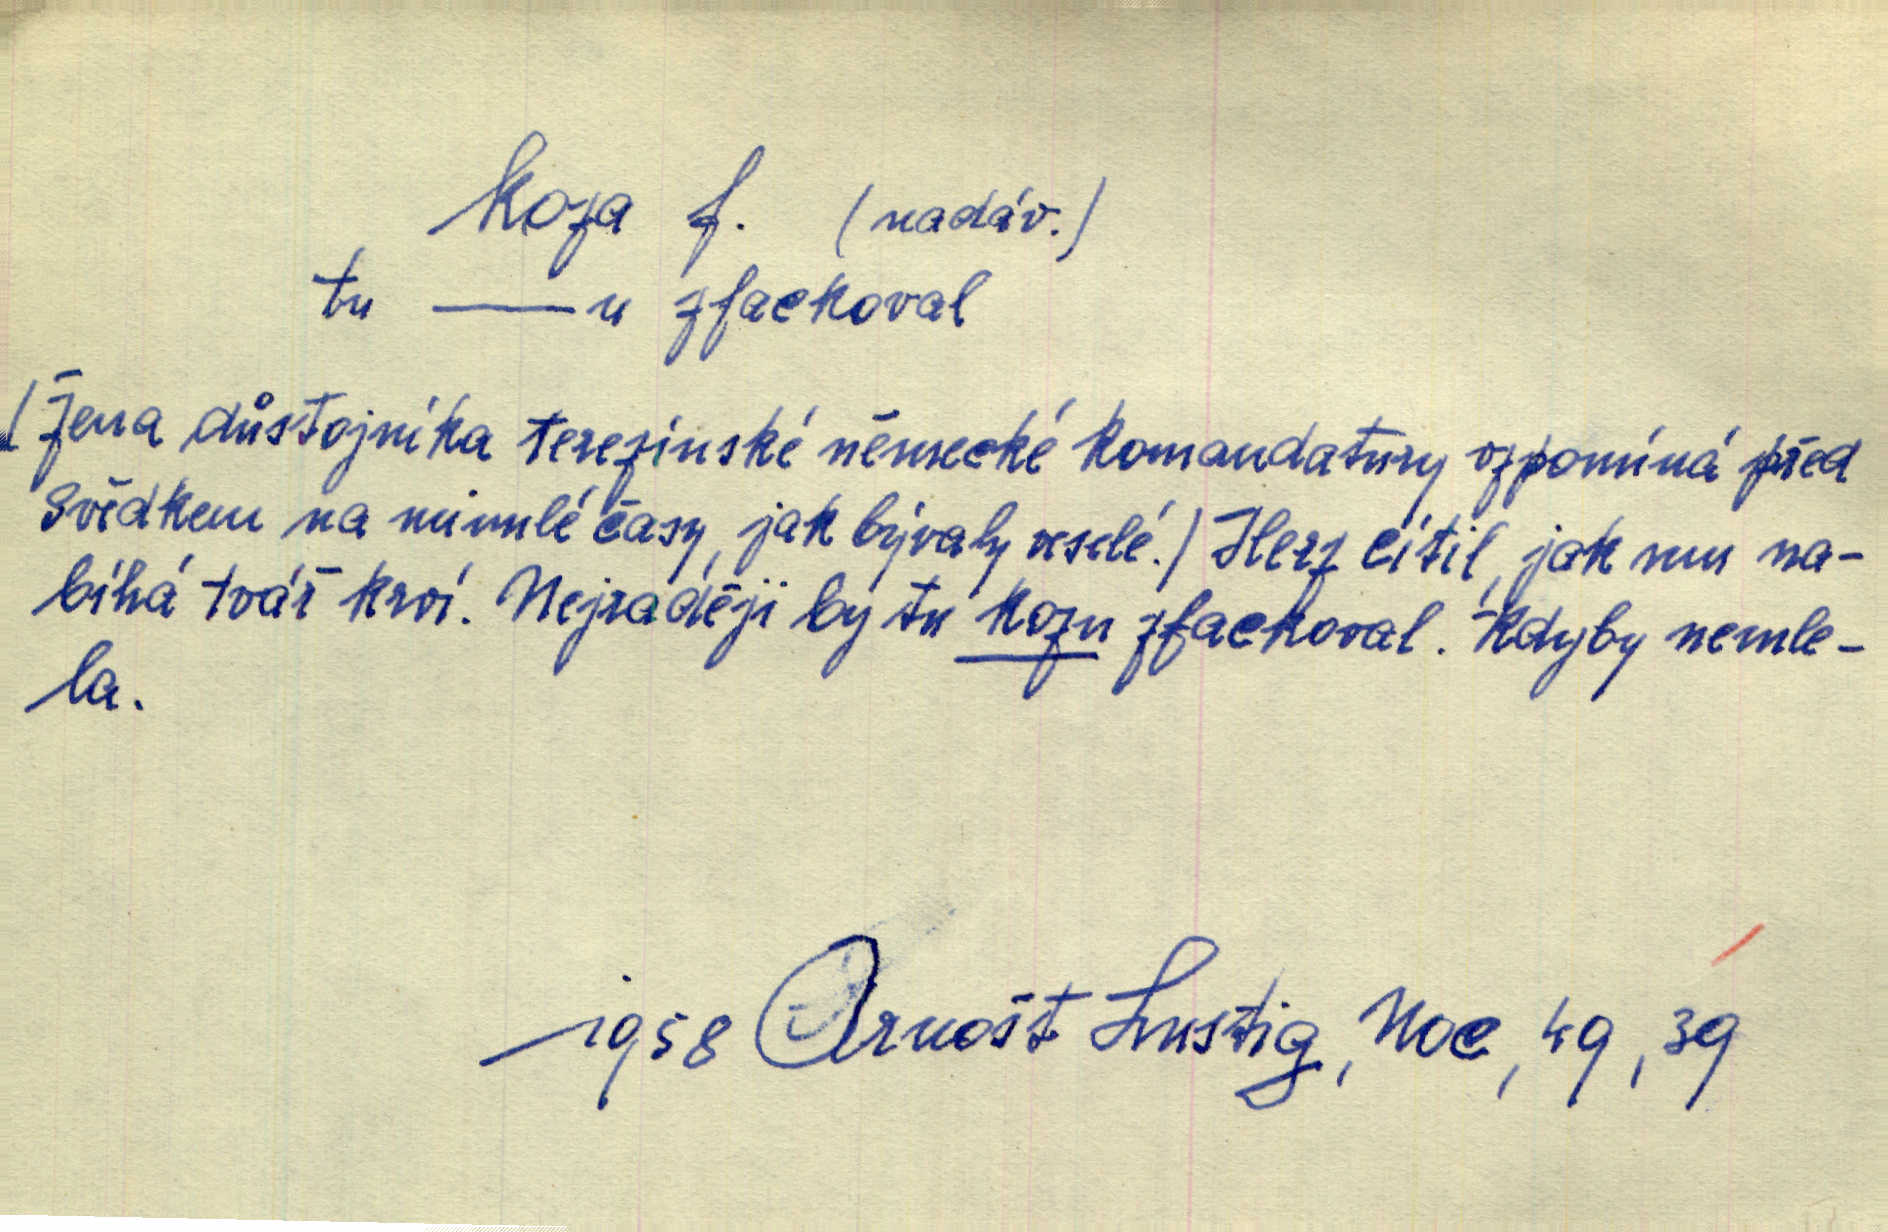 koza f. (nadáv.)
tu ——u zfackoval
(Žena důstojníka terezínské německé komandatury vzpomíná před
svědkem na minulé časy, jak bývaly veselé.) Herz cítil, jak mu na-
bíhá tvář krví. Nejraději by tu kozu zfackoval. Kdyby nemle-
la.
1958 Arnošt Lustig, Noc, 49, 39